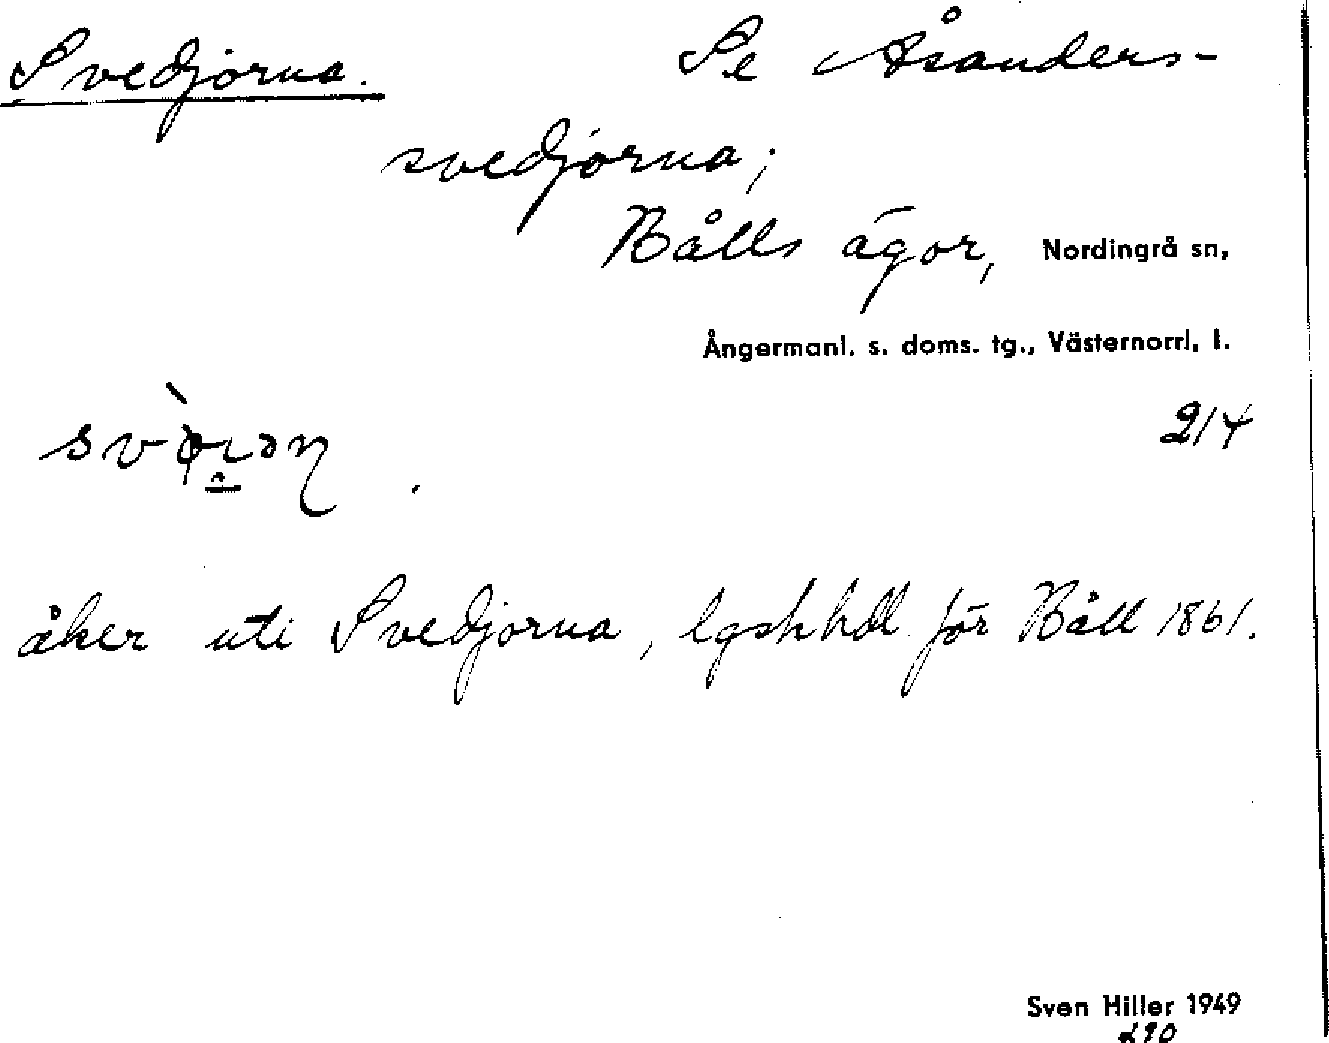 Svedjorna. Se Åsanders-
svedjorna;
Bålls ägor, Nordingrå sn,
Ångermanl. s. doms. tg., Västernorrl. l.
214
åker uti Svedjorna, lgskhdl. för Båll 1861.
Sven Hiller 1949